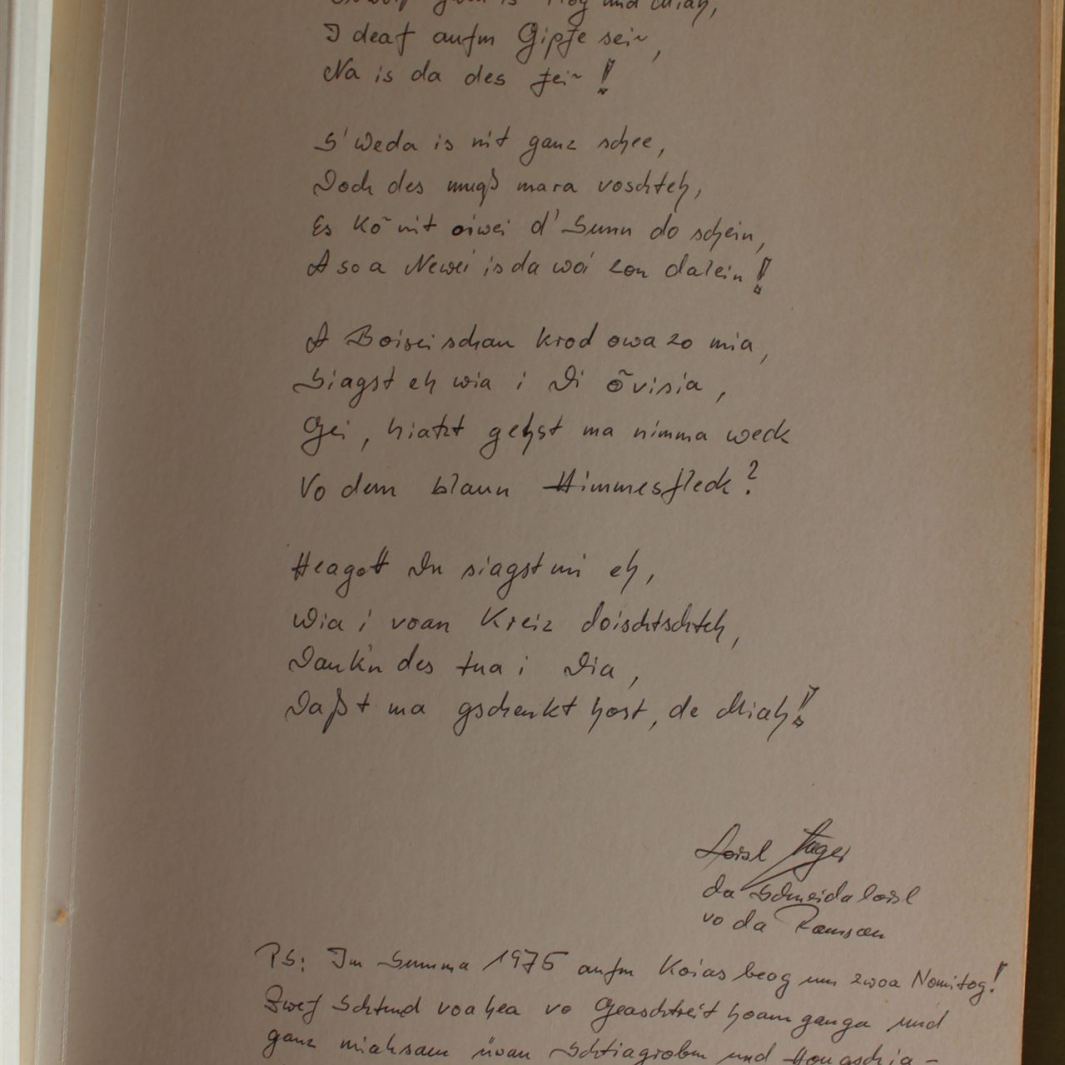 is Plog und Miah,
I deaf aufm Gipfe sei~,
Na is da des fei~!
S' Weda is nit ganz schee,
Doch des muaß mara voschteh,
Es kõ nit oiwei d' Sunn do schein,
A so a Newei is da woi zon dalein!
A Boisei schau krod owa zo mia,
Siagst eh wia i Di õvisia,
Gei, hiatzt gehst ma nimma weck
Vo dem blaun Himmesfleck?
Heagott Du siagst mi eh,
Wia i voan Kreiz doischtschteh,
Dank'n des tua i Dia,
Daßt ma gschenkt host, de Miah!
Loisl
da Schneidaloisl
vo da Ramsau
PS: Im Summa 1975 aufm Koiasbeog um zwoa Nomitog!
Zwef Schtund voahea vo Geaschtreit hoam ganga und
ganz miahsam üwan Schtiagrobm und